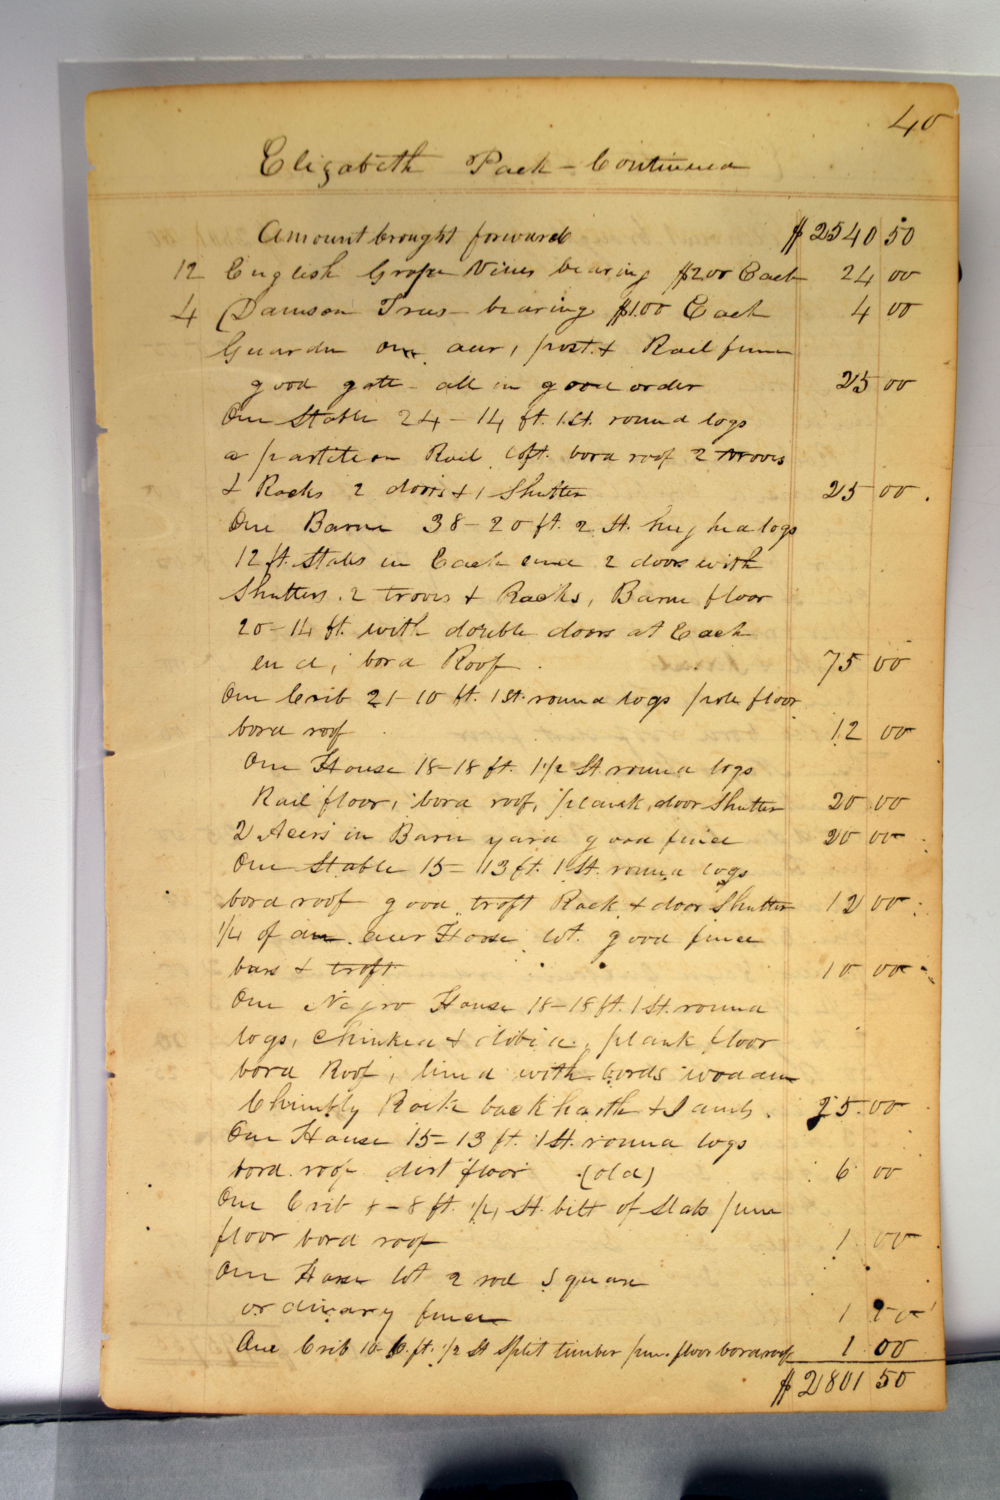 40
Elizabeth Pack - Continued
Amount brought forward $2540 50
12 English Grape Vines bearing $2.00 Each 24 00
4 Damson Trees bearing $1.00 Each 4 00
Guarden One acer, post & Rail fence
good gate - all in good order 25 00
One Stable 24 - 14 ft. 1 St. round logs
a partition Rail loft. bord roof 2 trovs
& Racks 2 doors & 1 Shutter 25 00
One Barne 38 - 20 ft. 2 St. hughed logs
12 ft. Stabs in Each end 2 doors with
Shutters. 2 trovs & Racks, Barne floor
20 - 14 ft. with double doors at Each
end, bord Roof 75 00
One Crib 21 - 10 ft. 1 St. round logs pole floor
bord roof 12 00
One House 18 - 18 ft. 1 1/2 St round logs
Rail floor, bord roof, plank door Shutter 20 00
2 Acers in Barn yard good fence 20 00
One Stable 15 - 13 ft. 1 St. round logs
bord roof good troft Rack & door Shutter 12 00
1/4 of an acer Horse lot. good fence
bars & troft 10 00
One Negro House 18 - 18 ft. 1 St. round
logs, chinked & dobed, plank floor
bord Roof, lined with bords wooden
Chimbly Rock back harth & Jambs. 25 00
One House 15 - 13 ft. 1 St. round logs
bord roof dirt floor (old) 6 00
One Crib - 8 ft. St. bilt of Slabs
floor bord roof 1 00
One Horse lot 2 rod Square
ordinary fence 1 50
One Crib 10 - 6 ft. 1/2 St Split timber floor bord roof 1 00
$2801 50